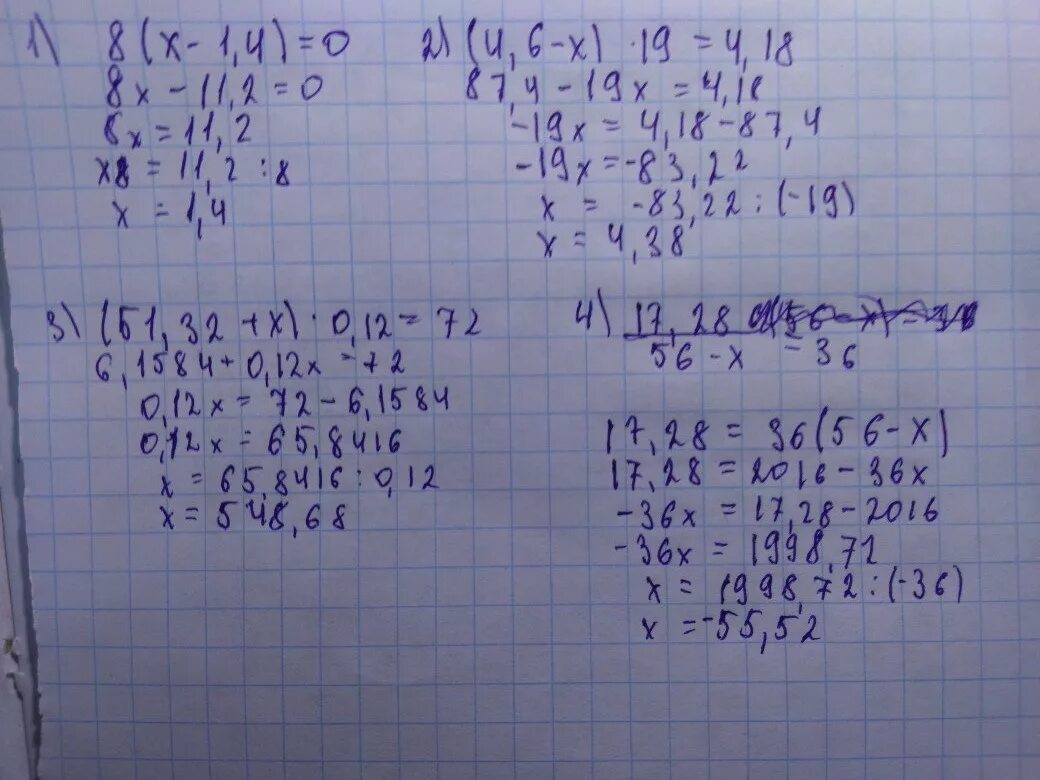 1) 8(x-1,4)=0
8x-11,2=0
8x=11,2
x8=11,2:8
x=1,4
2) (4,6-x)·19=4,18
87,4-19x=4,18
-19x=4,18-87,4
-19x=-83,22
x=-83,22:(-19)
x=4,38
3) (51,32+x)·0,12=72
6,1584+0,12x=72
0,12x=72-6,1584
0,12x=65,8416
x=65,8416:0,12
x=548,68
4) 17,28
56-x =36
17,28=36(56-x)
17,28=2016-36x
-36x=17,28-2016
-36x=1998,72
x=1998,72:(-36)
x=-55,52